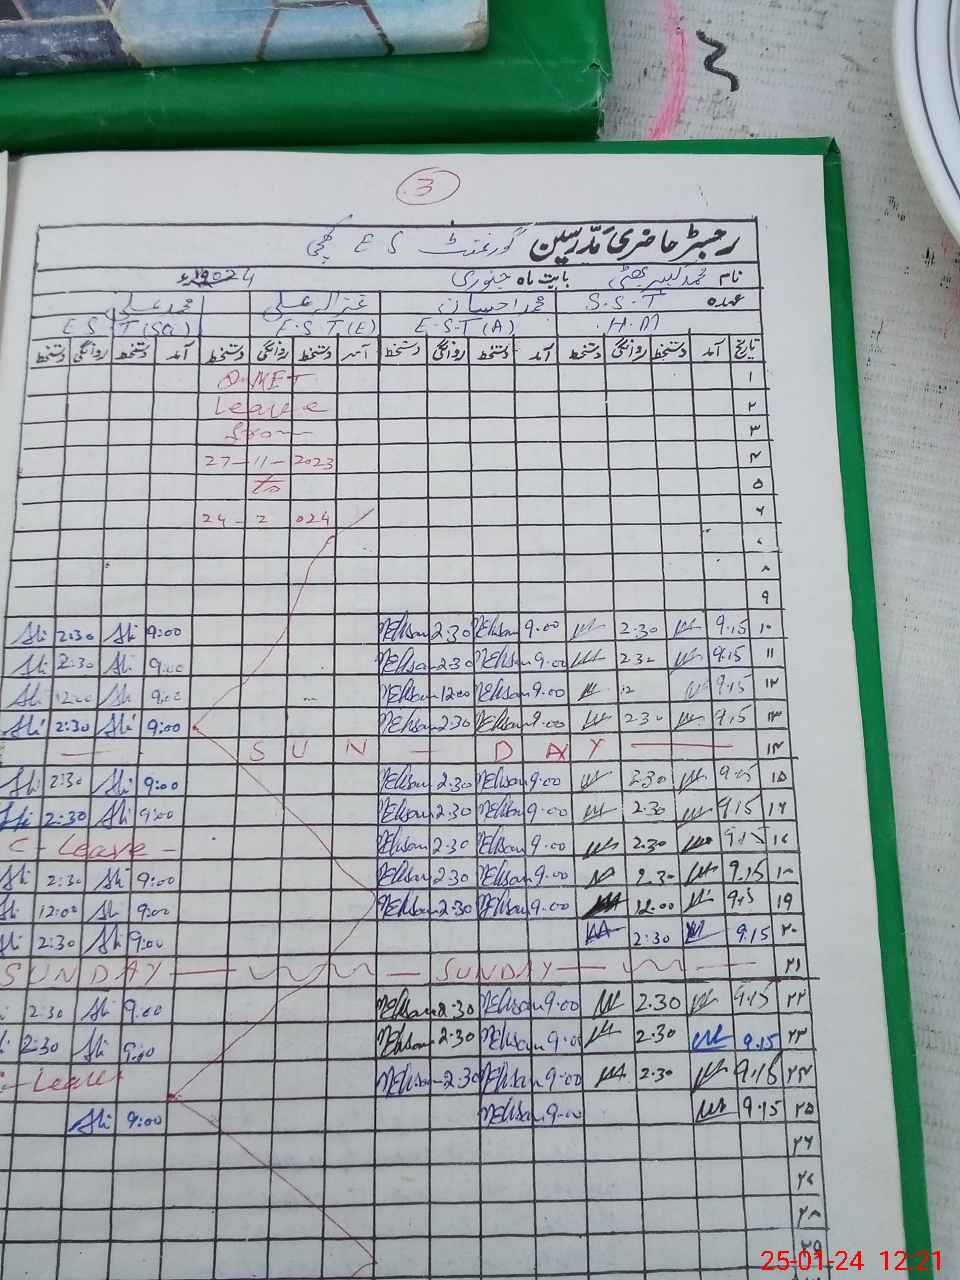 3
رجسٹر حاضری مدرسین گورنمنٹ E S
نام محمد بابت ماہ جنوری 2024
عہدہ S.S.T محمد احسان محمد علی
H.M E.S.T (A) E.S.T (E) E S T (Sci)
تاریخ آمد دستخط روانگی دستخط آمد دستخط روانگی دستخط آمد دستخط روانگی دستخط آمد دستخط روانگی دستخط
۱
۲ Leave
۳ from
۴ 27-11-2023
۵ to
۶ 24-2 024
۷
۸
۹
۱۰ 9.15 2.30 9.00 MEhsan 2.30 MEhsan 9:00 Ali 2:30 Ali
۱۱ 9.15 2.30 9.00 MEhsan 2.30 MEhsan 9:00 Ali 2:30 Ali
۱۲ 9.15 12 9.00 MEhsan 12.00 MEhsan 9:00 Ali 12:00 Ali
۱۳ 9.15 2.30 9.00 MEhsan 2.30 MEhsan 9:00 Ali 2:30 Ali
۱۴ SUN — DAY
۱۵ 9.15 2.30 9.00 MEhsan 2.30 MEhsan 9:00 Ali 2:30 Ali
۱۶ 9.15 2.30 9.00 MEhsan 2.30 MEhsan 9:00 Ali 2:30 Ali
۱۷ 9.15 2.30 9.00 MEhsan 2.30 MEhsan C-Leave-
۱۸ 9.15 2.30 9.00 MEhsan 2.30 MEhsan 9:00 Ali 2:30 Ali
۱۹ 9.15 12.00 9.00 MEhsan 2.30 MEhsan 9:00 Ali 12:00 Ali
۲۰ 9.15 2:30 9:00 Ali 2:30 Ali
۲۱ SUNDAY — SUNDAY
۲۲ 9.15 2.30 9.00 MEhsan 2.30 MEhsan 9.00 Ali 2:30
۲۳ 9.15 2.30 9.00 MEhsan 2.30 MEhsan 9:00 Ali 2:30
۲۴ 9.15 2.30 9.00 MEhsan 2.30 MEhsan Leave
۲۵ 9.15 9.00 MEhsan 9:00 Ali
۲۶
۲۷
۲۸
۲۹
25-01-24 12:21